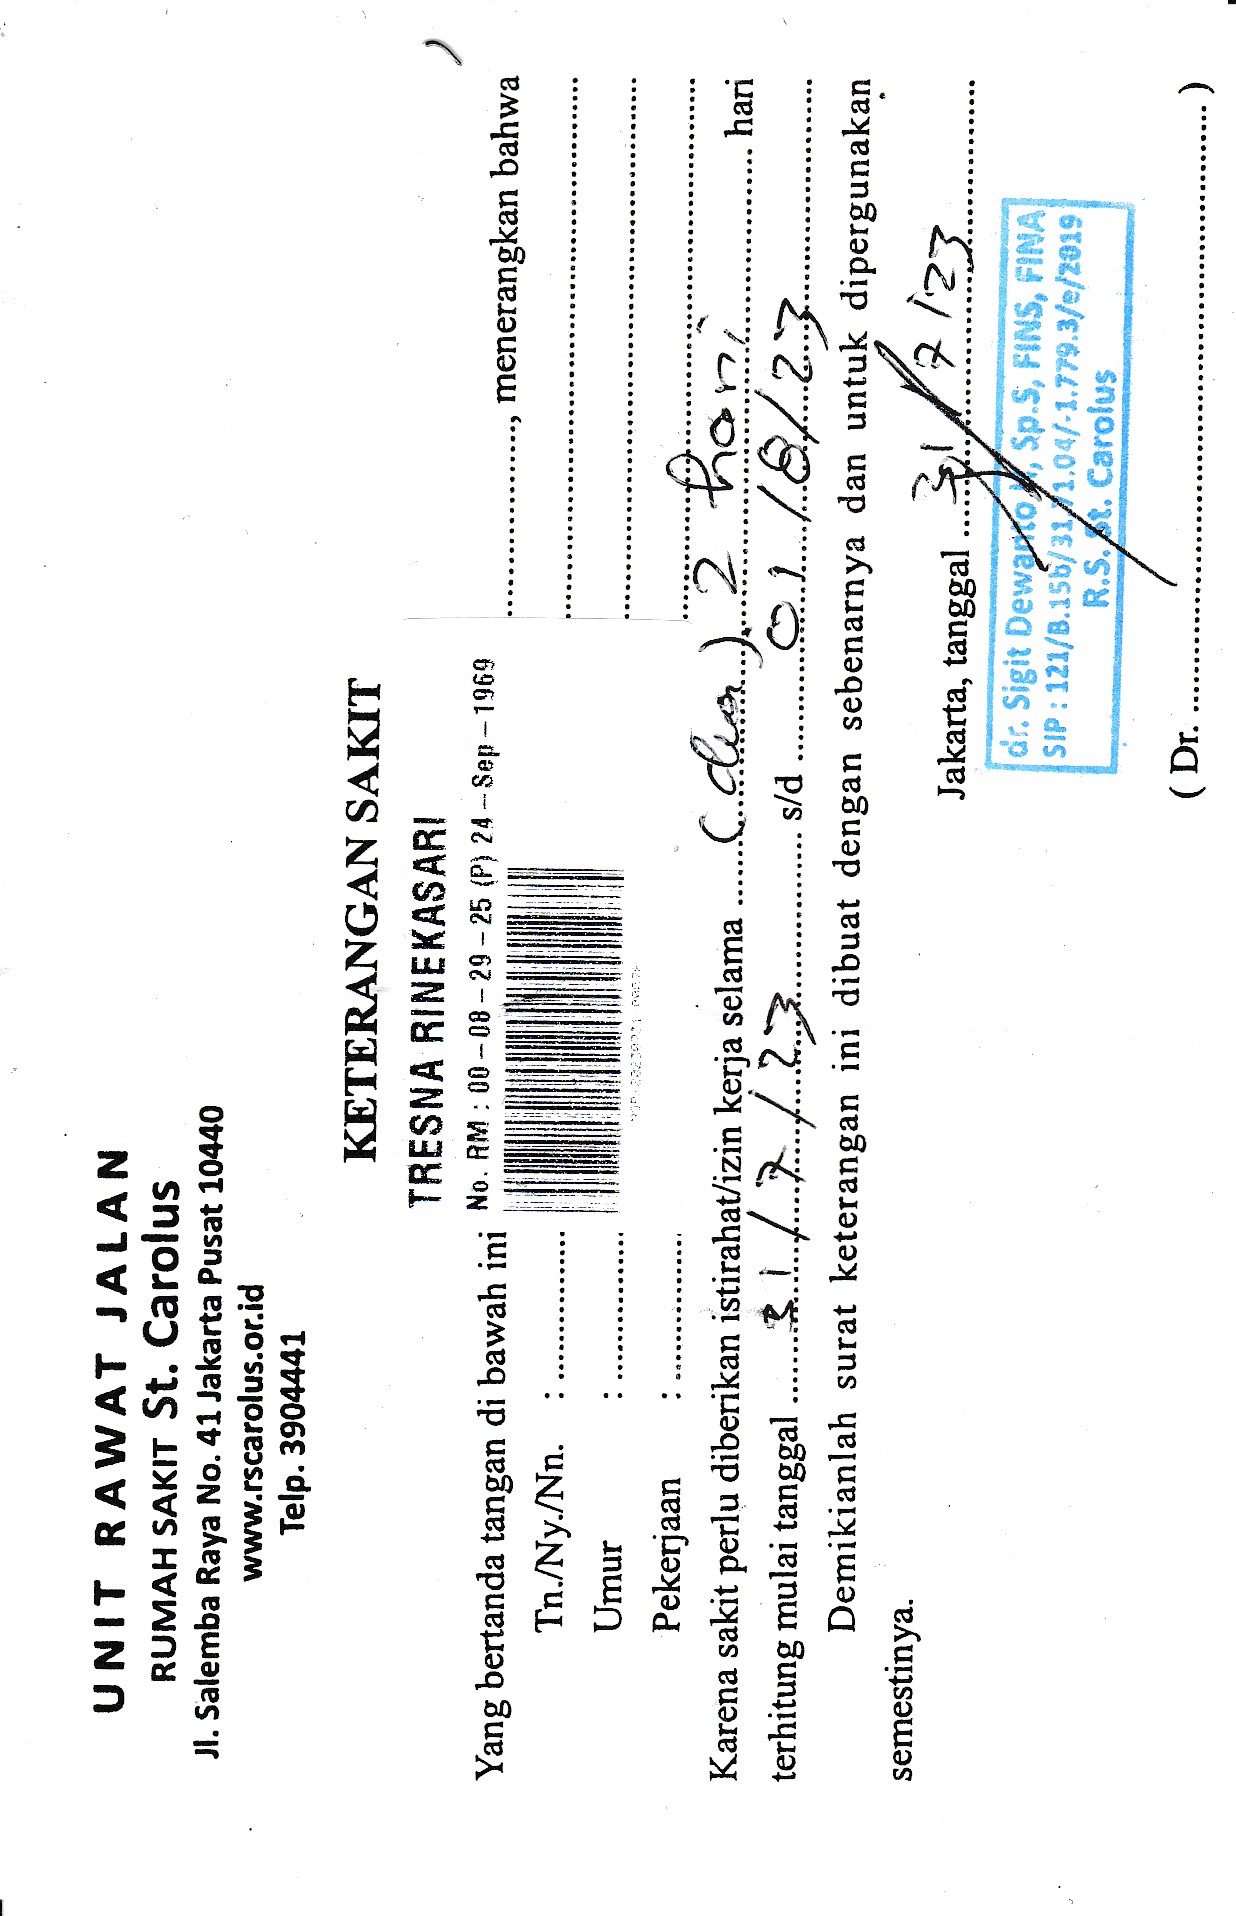 UNIT RAWAT JALAN
RUMAH SAKIT St. Carolus
Jl. Salemba Raya No. 41 Jakarta Pusat 10440
www.rscarolus.or.id
Telp. 3904441
KETERANGAN SAKIT
TRESNA RINEKASARI
No. RM : 00-08-29-25 (P) 24-Sep-1969
Yang bertanda tangan di bawah ini ..................., menerangkan bahwa
Tn./Ny./Nn. : ...............
Umur : ...............
Pekerjaan : ...............
Karena sakit perlu diberikan istirahat/izin kerja selama ......(dua). 2 hari .................. hari
terhitung mulai tanggal ........31/7/23................ s/d ...........01/8/23......................
Demikianlah surat keterangan ini dibuat dengan sebenarnya dan untuk dipergunakan
semestinya.
Jakarta, tanggal ....31/7/23...............
dr. Sigit Dewanto H, Sp.S, FINS, FINA
SIP : 121/B.15b/31.71.04/-1.779.3/e/2019
R.S. St. Carolus
( Dr. ............................................................. )